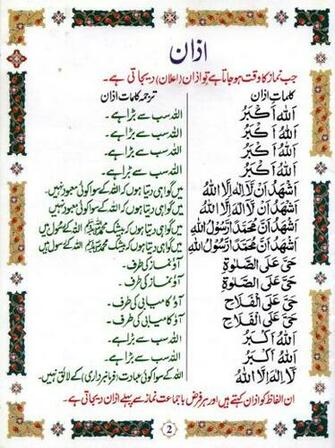 اذان
جب نماز کا وقت ہو جاتا ہے تو اذان (اعلان) دیجاتی ہے۔
کلماتِ اذان ترجمہ کلمات اذان
اَللّٰهُ اَكْبَرُ اللہ سب سے بڑا ہے۔
اَللّٰهُ اَكْبَرُ اللہ سب سے بڑا ہے۔
اَللّٰهُ اَكْبَرُ اللہ سب سے بڑا ہے۔
اَللّٰهُ اَكْبَرُ اللہ سب سے بڑا ہے۔
اَشْهَدُ اَنْ لَّا اِلٰهَ اِلَّا اللّٰهُ میں گواہی دیتا ہوں کہ اللہ کے سوا کوئی معبود نہیں۔
اَشْهَدُ اَنْ لَّا اِلٰهَ اِلَّا اللّٰهُ میں گواہی دیتا ہوں کہ اللہ کے سوا کوئی معبود نہیں۔
اَشْهَدُ اَنَّ مُحَمَّدًا رَّسُوْلُ اللّٰهِ میں گواہی دیتا ہوں کہ بیشک محمد ﷺ اللہ کے رسول ہیں
اَشْهَدُ اَنَّ مُحَمَّدًا رَّسُوْلُ اللّٰهِ میں گواہی دیتا ہوں کہ بیشک محمد ﷺ اللہ کے رسول ہیں
حَیَّ عَلَی الصَّلٰوةِ آؤ نماز کی طرف۔
حَیَّ عَلَی الصَّلٰوةِ آؤ نماز کی طرف۔
حَیَّ عَلَی الْفَلَاحِ آؤ کامیابی کی طرف۔
حَیَّ عَلَی الْفَلَاحِ آؤ کامیابی کی طرف۔
اَللّٰهُ اَكْبَرُ اللہ سب سے بڑا ہے۔
اَللّٰهُ اَكْبَرُ اللہ سب سے بڑا ہے۔
لَا اِلٰهَ اِلَّا اللّٰهُ اللہ کے سوا کوئی عبادت (فرمانبرداری) کے لائق نہیں۔
ان الفاظ کو اذان کہتے ہیں اور ہر فرض باجماعت نماز سے پہلے اذان دیجاتی ہے۔
2